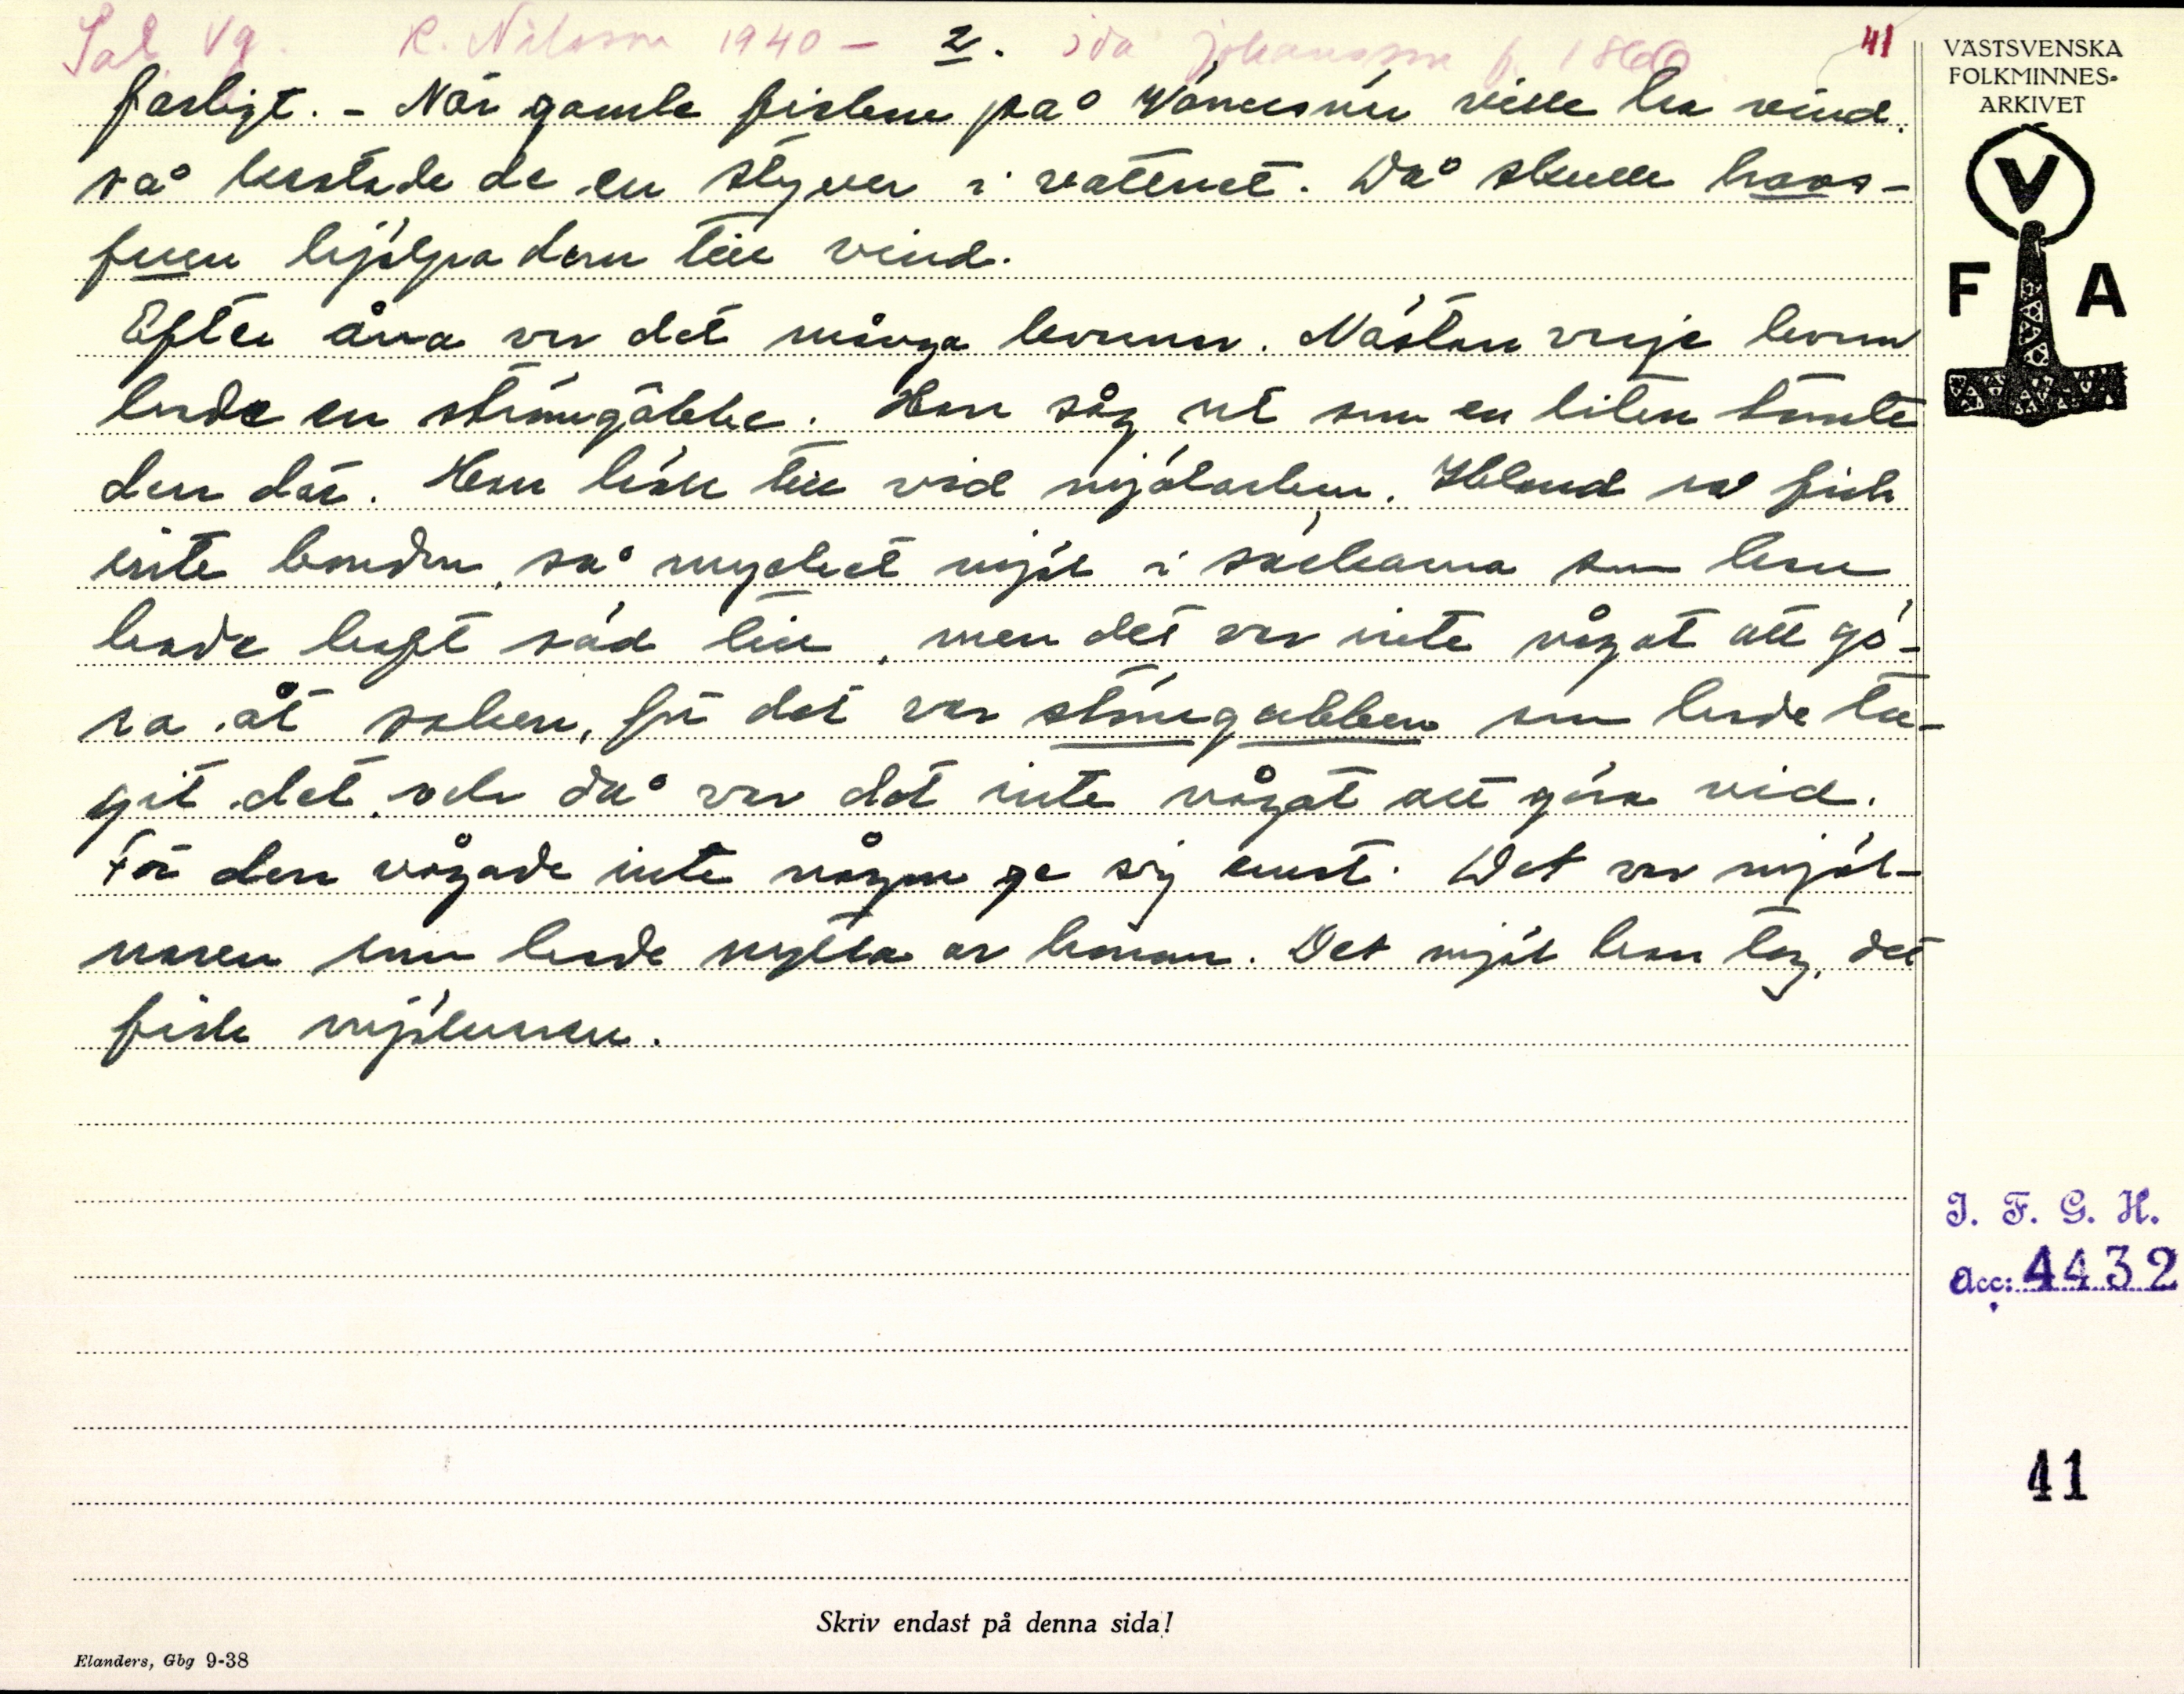 Sal. Vg. R. Nilsson 1940 – 2. Ida Johansson f. 1860 41
farligt. - När gamle fiskene på Vänersnäs ville ha vind,
så kastade de en styver i vattnet. Då skulle havs-
fruen hjälpa dem till vind.
Efter åna var det många kvarnar. Nästan varje kvarn
hade en strömgubbe. Han såg ut som en liten tomte
den där. Han höll till vid mjölarken. Ibland så fick
inte bonden, så mycket mjöl i säckarna som han
hade haft säd till, men det var inte något att gö-
ra åt saken, för det var strömgubben som hade ta-
git det, och då var det inte något att göra vid.
För den vågade inte någon ge sig emot. Det var mjöl-
naren som hade nytta av honom. Det mjöl han tog, det
fick mjölnaren.
VÄSTSVENSKA
FOLKMINNES-
ARKIVET
V
F A
I. F. G. H.
Acc: 4432
41
Skriv endast på denna sida!
Elanders, Gbg 9-38